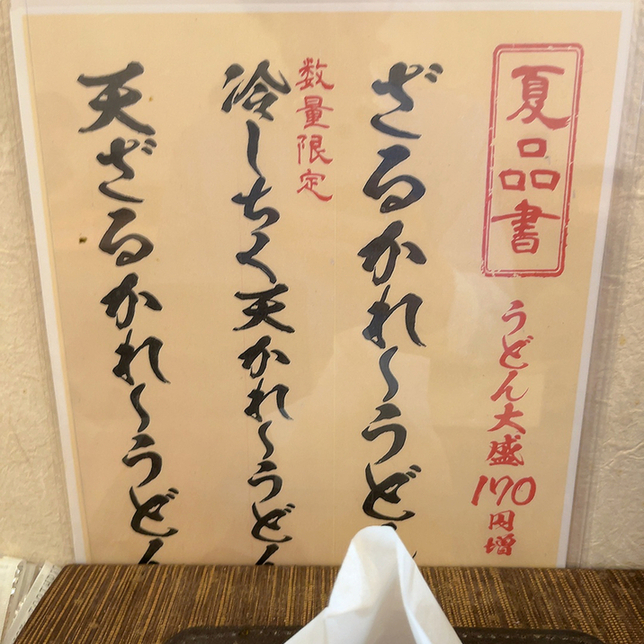 夏品書
うどん大盛170円増
ざるかれ～うどん
数量限定
冷しちく天かれ～うどん
天ざるかれ～うどん